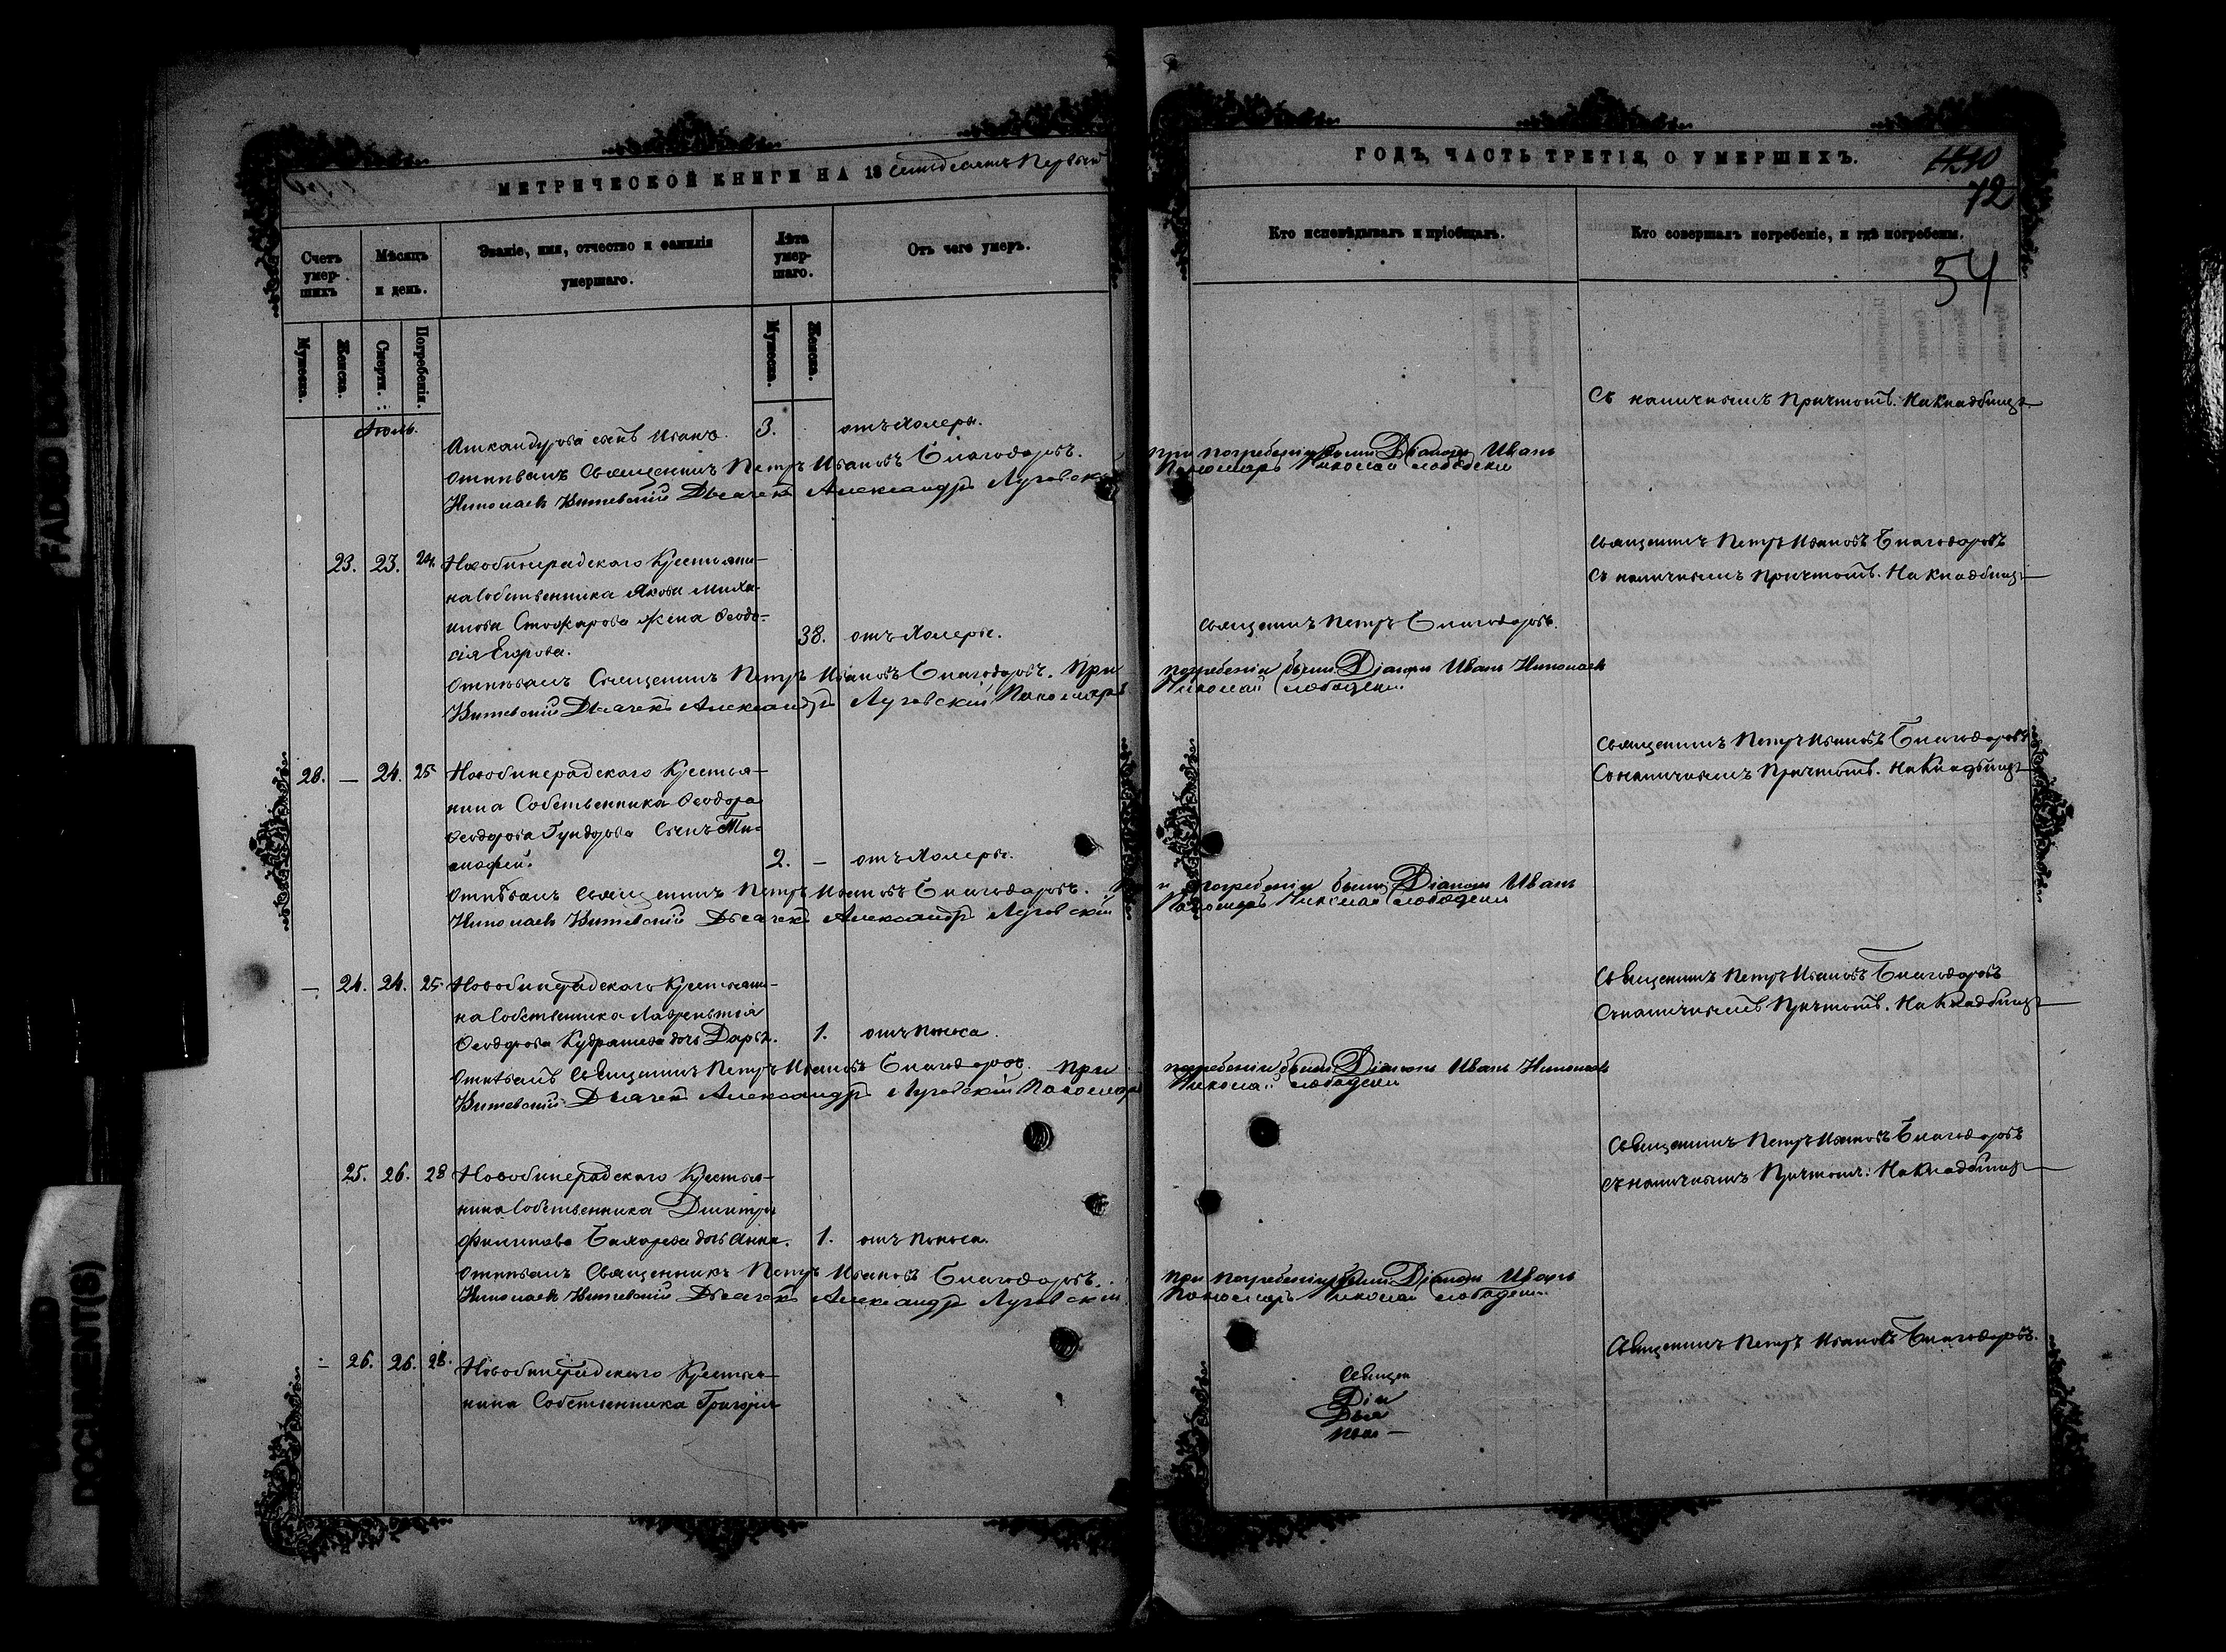 МЕТРИЧЕСКОЙ КНИГИ НА 18 семьдесятъ Первый
Счетъ умер- шихъ
Мѣсяцъ и день.
Званіе, имя, отчество и фамилія умершаго.
Лѣта умер- шаго.
Отъ чего умеръ.
Мужеска.
Женска.
Смерти.
Погребенія.
Мужеска.
Женска.
Июль.
сынъ Иванъ. 3. отъ Холеры.
Отпѣвалъ Священникъ Петръ Ивановъ Благодаровъ.
Николаевъ Дьячекъ Александръ Луговскій
23. 23. 24. Новобинарадскаго Крестьяни-
на Собственника Якова Миха-
илова Столярова жена Ѳеодо-
сія Егорова. 38. отъ Холеры.
Отпѣвалъ Священникъ Петръ Ивановъ Благодаровъ. При
Дьячекъ Александръ Луговскій Пономарь
28. — 24. 25 Новобинарадскаго Крестья-
нина Собственника Ѳеодора
Ѳеодорова Сынъ Ти-
моѳей. 2. – отъ Холеры.
Отпѣвалъ Священникъ Петръ Ивановъ Благодаровъ.
Николаевъ Дьячекъ Александръ Луговскій
— 24. 24. 25 Новобинарадскаго Крестьяни-
на Собственника Лаврентія
Ѳеодорова Кудряшева дочь Дарья. 1. отъ Поноса.
Отпѣвалъ Священникъ Петръ Ивановъ Благодаровъ. При
Дьячекъ Александръ Луговскій Пономарь
25. 26. 28 Новобинарадскаго Крестья-
нина Собственника Димитрія
Филипова дочь Анна. 1. отъ Поноса.
Отпѣвалъ Священникъ Петръ Ивановъ Благодаровъ.
Николаевъ Дьячекъ Александръ Луговскій
- 26. 26. 28. Новобинарадскаго Крестья-
нина Собственника Григорія
ГОДЪ, ЧАСТЬ ТРЕТІЯ, О УМЕРШИХЪ.
72
54
Кто исповѣдывалъ и пріобщалъ.
Кто совершалъ погребеніе, и гдѣ погребены.
Съ наличнымъ Причтомъ. На Кладбищѣ
При погребеніи были Діаконъ Иванъ
Пономарь Николай Слободскій
Священникъ Петръ Ивановъ Благодаровъ
Съ наличнымъ Причтомъ. На Кладбищѣ
Священникъ Петръ Благодаровъ.
погребеніи были Діаконъ Иванъ Николаевъ
Николай Слободскій
Священникъ Петръ Ивановъ Благодаровъ
Съ наличнымъ Причтомъ. На Кладбищѣ
погребеніи были Діаконъ Иванъ
Пономарь Николай Слободскій
Священникъ Петръ Ивановъ Благодаровъ
Съ наличнымъ Причтомъ. На Кладбищѣ
погребеніи были Діаконъ Иванъ Николаевъ
Николай Слободскій
Священникъ Петръ Ивановъ Благодаровъ
Съ наличнымъ Причтомъ. На Кладбищѣ
При погребеніи были Діаконъ Иванъ
Пономарь Николай Слободскій
Священникъ Петръ Ивановъ Благодаровъ.
Священ
Діа
Дья
Поно –
DOCUMENT(S)